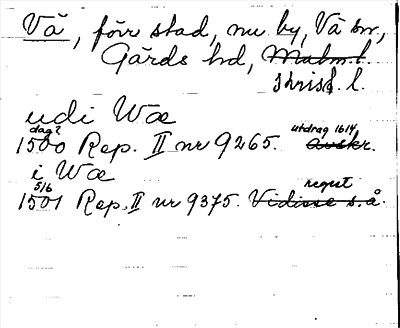 Vä, förr stad, nu by, Vä sn,
Gärds hd, Malm. l.
Krist. l.
udi Wæ
dag?
1500 Rep. II nr 9265. Avskr.
utdrag 1614
i Wæ
5/6
1501 Rep. II nr 9375. Vidisse s.å.
regest